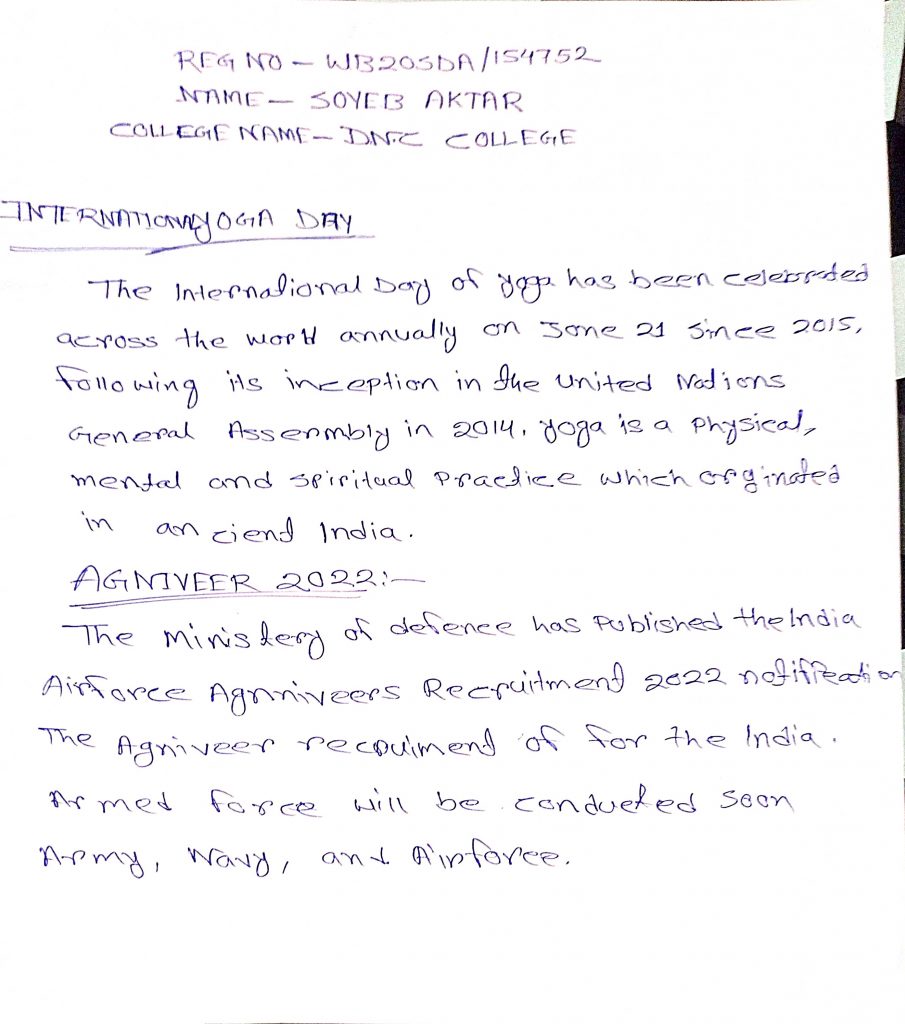 REG NO - WB20SDA/154752
NAME - SOYEB AKTAR
COLLEGE NAME - DNC COLLEGE
INTERNATIONAL YOGA DAY
The International Day of yoga has been celebrated
across the world annually on June 21 since 2015,
following its inception in the United Nations
General Assenmbly in 2014. yoga is a Physical,
mental and spiritual Practice which orginated
in an ciend India.
AGNIVEER 2022:-
The Ministery of defence has Published the India
Airforce Agnniveers Recruitment 2022 notification
The Agniveer recouiment of for the India.
Armed force will be conducted soon
Army, Navy, and Airforce.